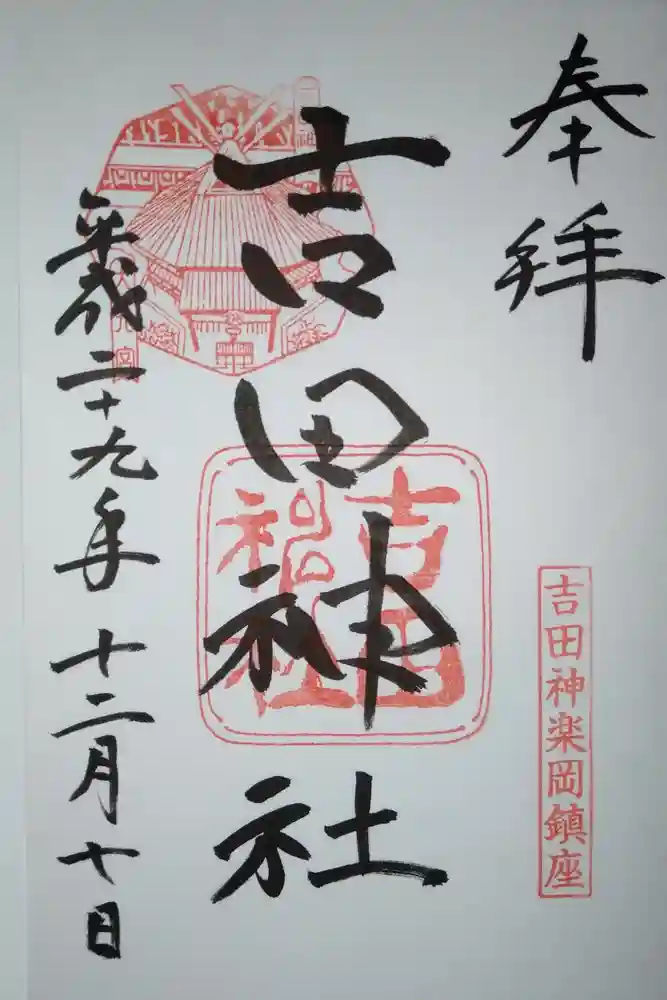 奉拝
吉田神楽岡鎮座
吉田神社
吉田
神社
平成二十九年十二月十日